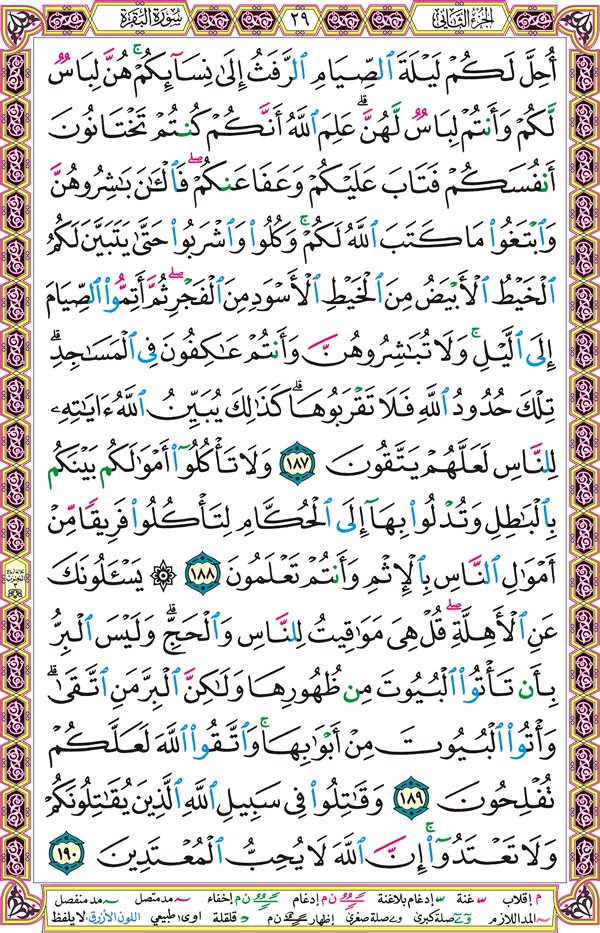 الجزء الثاني
٢٩
سورة البقرة
أُحِلَّ لَكُمْ لَيْلَةَ ٱلصِّيَامِ ٱلرَّفَثُ إِلَىٰ نِسَآئِكُمْ ۚ هُنَّ لِبَاسٌ
لَّكُمْ وَأَنتُمْ لِبَاسٌ لَّهُنَّ ۗ عَلِمَ ٱللَّهُ أَنَّكُمْ كُنتُمْ تَخْتَانُونَ
أَنفُسَكُمْ فَتَابَ عَلَيْكُمْ وَعَفَا عَنكُمْ ۖ فَٱلْـَٰٔنَ بَٰشِرُوهُنَّ
وَٱبْتَغُوا۟ مَا كَتَبَ ٱللَّهُ لَكُمْ ۚ وَكُلُوا۟ وَٱشْرَبُوا۟ حَتَّىٰ يَتَبَيَّنَ لَكُمُ
ٱلْخَيْطُ ٱلْأَبْيَضُ مِنَ ٱلْخَيْطِ ٱلْأَسْوَدِ مِنَ ٱلْفَجْرِ ۖ ثُمَّ أَتِمُّوا۟ ٱلصِّيَامَ
إِلَى ٱلَّيْلِ ۚ وَلَا تُبَٰشِرُوهُنَّ وَأَنتُمْ عَٰكِفُونَ فِى ٱلْمَسَٰجِدِ ۗ
تِلْكَ حُدُودُ ٱللَّهِ فَلَا تَقْرَبُوهَا ۗ كَذَٰلِكَ يُبَيِّنُ ٱللَّهُ ءَايَٰتِهِۦ
لِلنَّاسِ لَعَلَّهُمْ يَتَّقُونَ ١٨٧ وَلَا تَأْكُلُوٓا۟ أَمْوَٰلَكُم بَيْنَكُم
بِٱلْبَٰطِلِ وَتُدْلُوا۟ بِهَآ إِلَى ٱلْحُكَّامِ لِتَأْكُلُوا۟ فَرِيقًا مِّنْ
أَمْوَٰلِ ٱلنَّاسِ بِٱلْإِثْمِ وَأَنتُمْ تَعْلَمُونَ ١٨٨ ۞ يَسْـَٔلُونَكَ
عَنِ ٱلْأَهِلَّةِ ۖ قُلْ هِىَ مَوَٰقِيتُ لِلنَّاسِ وَٱلْحَجِّ ۗ وَلَيْسَ ٱلْبِرُّ
بِأَن تَأْتُوا۟ ٱلْبُيُوتَ مِن ظُهُورِهَا وَلَٰكِنَّ ٱلْبِرَّ مَنِ ٱتَّقَىٰ ۗ
وَأْتُوا۟ ٱلْبُيُوتَ مِنْ أَبْوَٰبِهَا ۚ وَٱتَّقُوا۟ ٱللَّهَ لَعَلَّكُمْ
تُفْلِحُونَ ١٨٩ وَقَٰتِلُوا۟ فِى سَبِيلِ ٱللَّهِ ٱلَّذِينَ يُقَٰتِلُونَكُمْ
وَلَا تَعْتَدُوٓا۟ ۚ إِنَّ ٱللَّهَ لَا يُحِبُّ ٱلْمُعْتَدِينَ ١٩٠
م إقلاب غنة إدغام بلاغنة ن م إدغام ن م إخفاء مد متصل مد منفصل
المد اللازم صلة كبرى صلة صغرى إظهار ن م قلقلة اوى: طبيعي اللون الأزرق: لا يلفظ